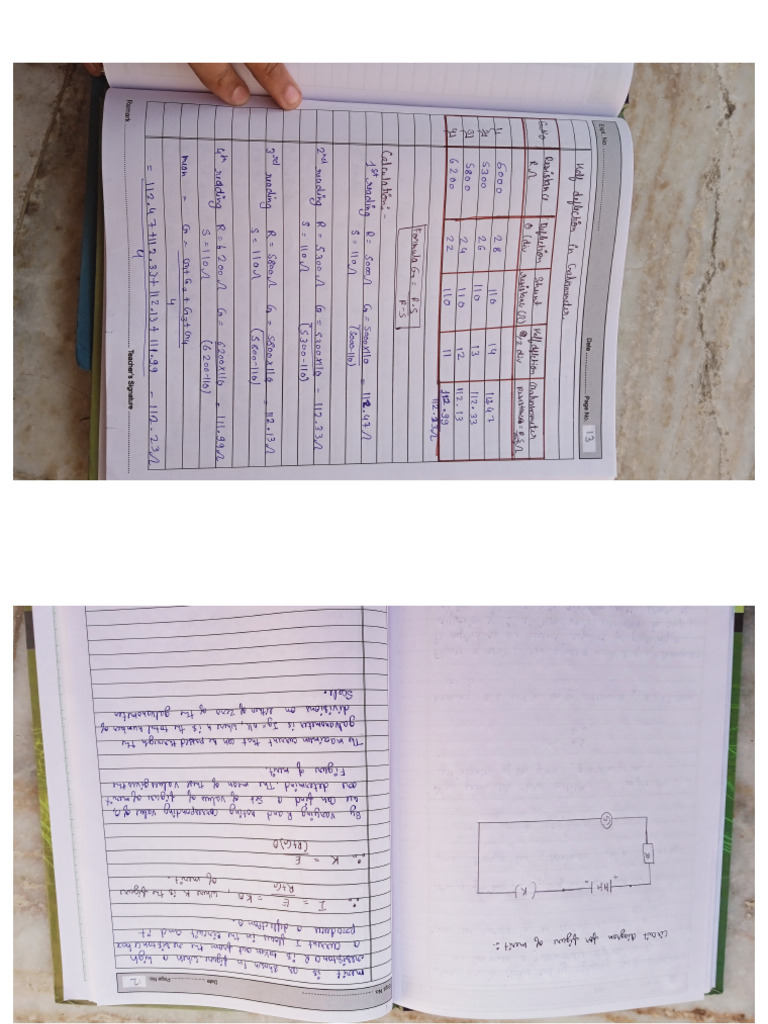 Expt. No.
Date
Page No. 13
Half deflection in Galvanometer.
S.no Resistance R Ω Deflection θ (div Shunt resistance (Ω) Half deflection θ/2 div Galvanometer resistance = R.S/R-S Ω
1) 5000 28 110 14 112.47
2) 5300 26 110 13 112.33
3) 5800 24 110 12 112.13
4) 6200 22 110 11
112.23Ω
Formula G = R.S/R-S
Calculation:-
1st reading R = 5000Ω G = 5000x110/(5000-110) = 112.47Ω
S = 110Ω
2nd reading R = 5300Ω G = 5300x110/(5300-110) = 112.33Ω
S = 110Ω
3rd reading R = 5800Ω G = 5800x110/(5800-110) = 112.13Ω
S = 110Ω
4th reading R = 6200Ω G = 6200x110/(6200-110) = 111.99Ω
S = 110Ω
mean = G = G1+G2+G3+G4/4
= 112.47+112.33+112.13+111.99/4 = 112.23Ω
Remark
Teacher's Signature
Expt. No.
Date
Page No. 12
merit is as shown in figure when a high
resistance R is taken out from the resistance box
a current I flows in the circuit and it
produces a deflection θ.
∴ I = E/R+G = kθ, when K is the figure
of merit.
∴ K = E/(R+G)θ
By varying R and noting corresponding value of θ,
we can find a set of value of figure of merit
are determined. The mean of these values gives the
Figure of merit.
The maximum current that can be passed through the
galvanometer is Ig = nk, where n is the total number of
divisions on either of zero of the galvanometer
Scale.
Circuit diagram for figure of merit:-
(K)
R
G